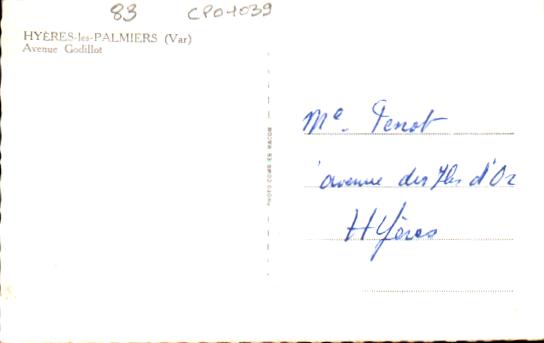 83 CP01039
HYÈRES-les-PALMIERS (Var)
Avenue Godillot
PHOTO COMBIER MACON
Me. Penot
avenue des Iles d'Or
Hyères